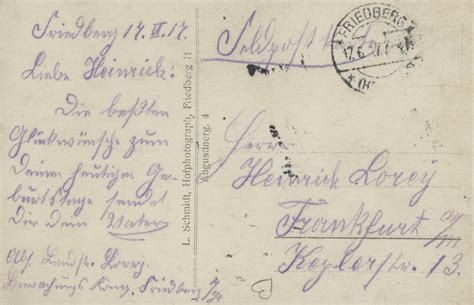 Friedberg 17. VI. 17.
Liebe Heinrich!
Die beßten
Glückwünsche zum
Deinem heutigen Ge-
burtstage sendet
Dir Dein Vater
Abs. Landst. Lorey.
Bewachungs Komp. Friedberg
L. Schmidt, Hofphotograph, Friedberg H
Augustinerg. 4
Feldpost
FRIEDBERG
17.6.17.
Herrn
Heinrich Lorey
Frankfurt a/M
Keplerstr. 13.